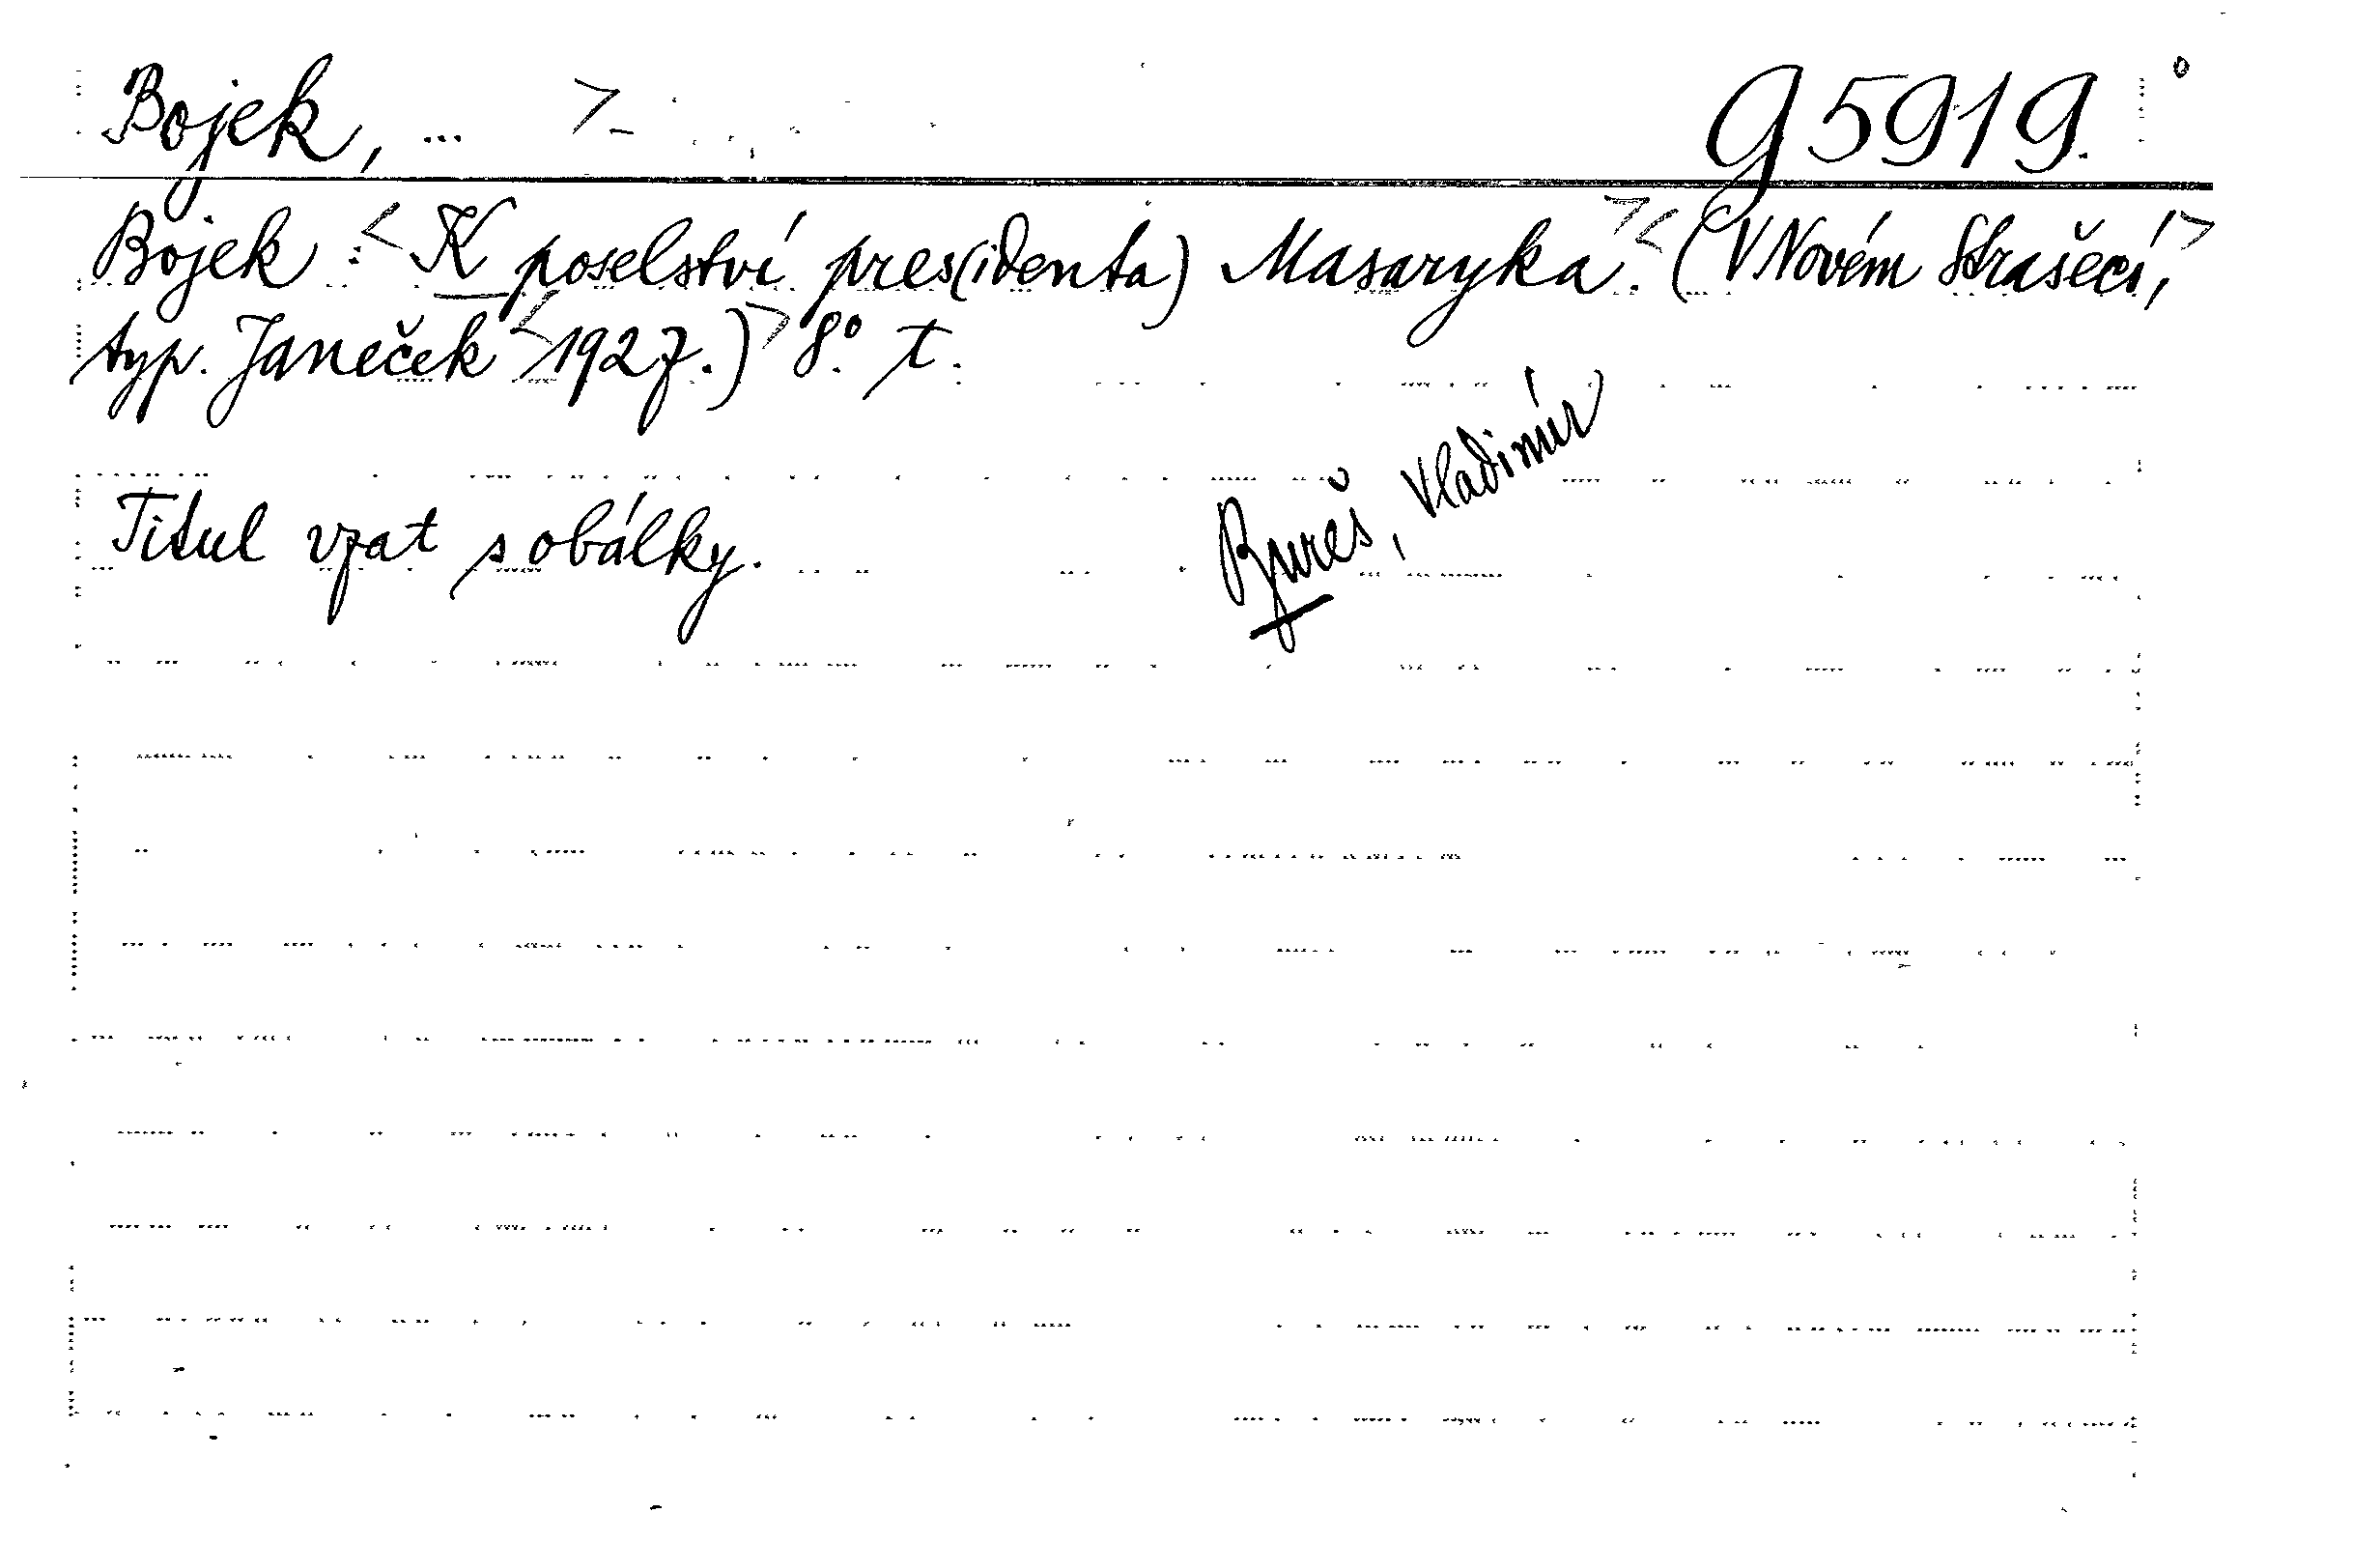 Bojek, ... > g 5919.
Bojek : < K poselství pres(identa) Masaryka. > < (V Novém Strašecí, >
typ. Janeček < 1927.) > 8°. t.
Bureš, Vladimír
Titul vzat s obálky.